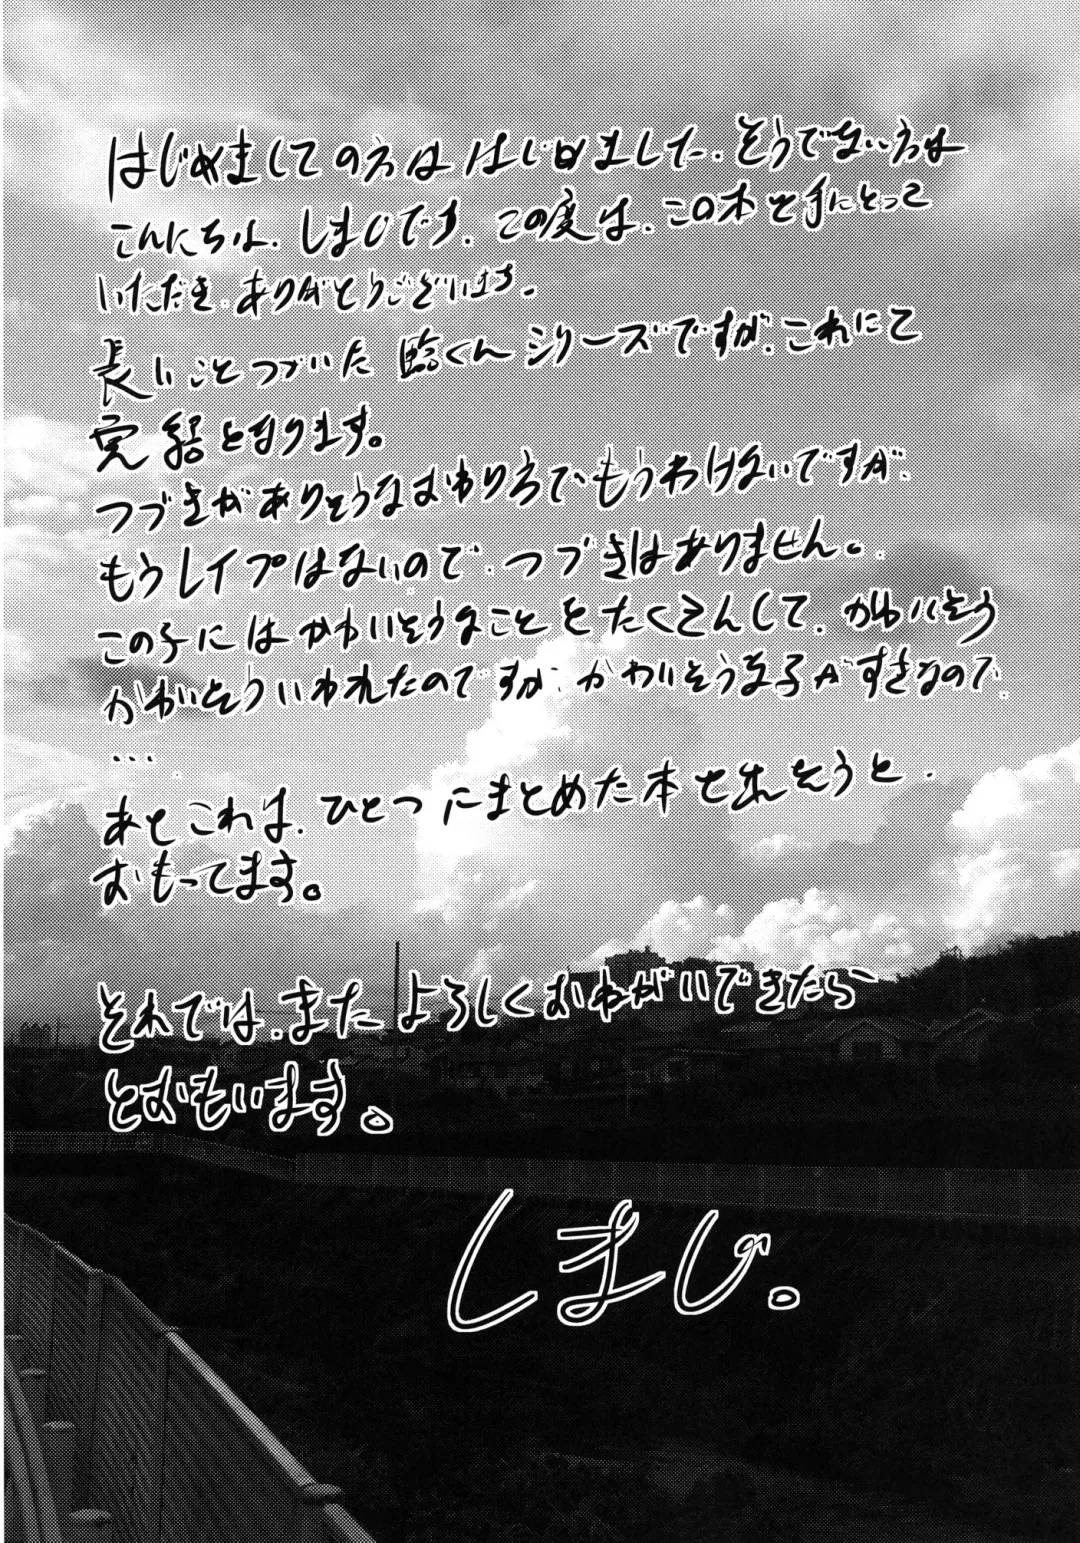 はじめましての方ははじめまして、そうでない方は
こんにちは、しまじです。この度は、この本を手にとって
いただき、ありがとうございます。
長いことつづいた臨くんシリーズですが、これにて
完結となります。
つづきがありそうなおわり方でもうわけないですが、
もうレイプはないので、つづきはありません。
この子にはかわいそうなことをたくさんして、かわいそう
かわいそういわれたのですが、かわいそうな子がすきなので
…
あとこれは、ひとつにまとめた本を出そうと、
おもってます。
それでは、またよろしくおねがいできたら
とおもいます。
しまじ。